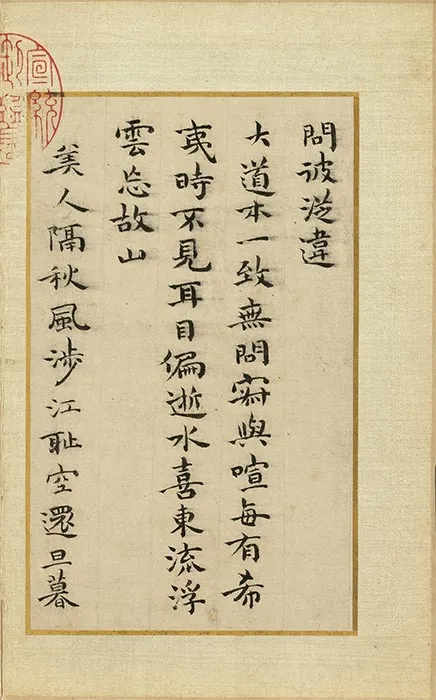 問彼從違
大道本一致無問寂與喧每有希
夷時不見耳目偏逝水喜東流浮
雲忘故山
美人隔秋風涉江恥空還旦暮
宣統